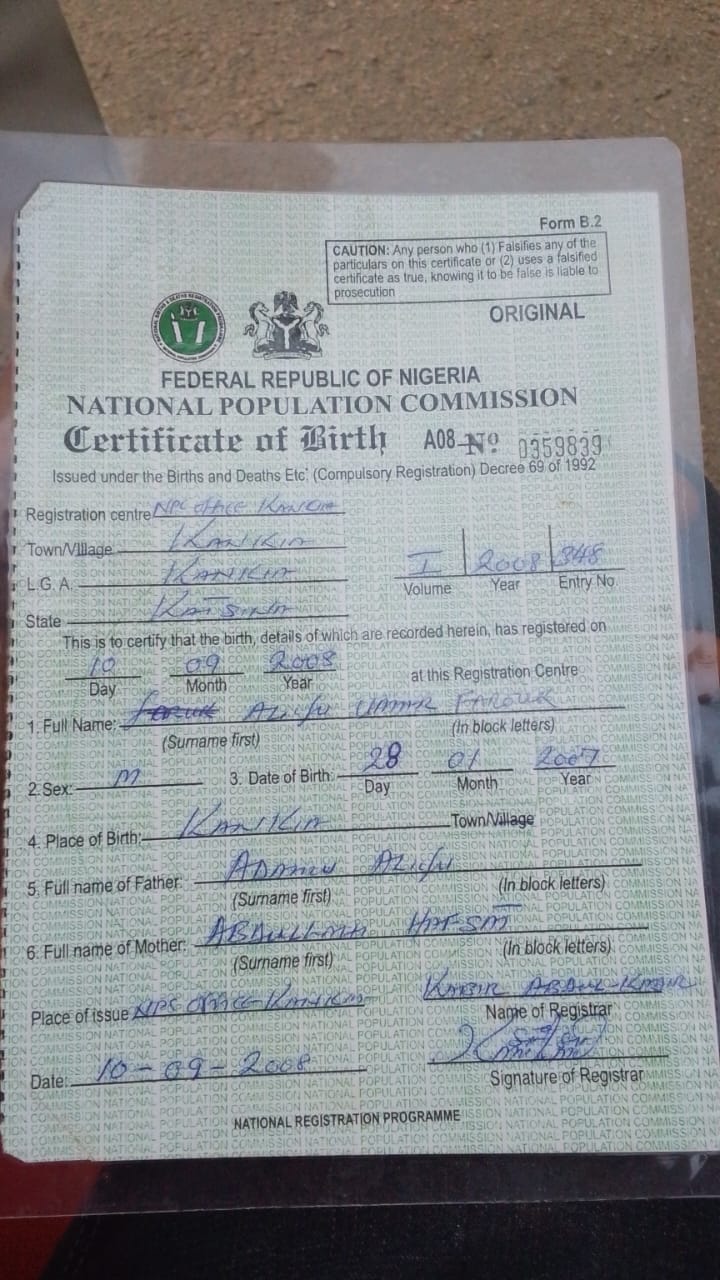 Form B.2
CAUTION: Any person who (1) Falsifies any of the
particulars on this certificate or (2) uses a falsified
certificate as true, knowing it to be false is liable to
prosecution
ORIGINAL
FEDERAL REPUBLIC OF NIGERIA
NATIONAL POPULATION COMMISSION
Certificate of Birth A08 Nº 0359839
Issued under the Births and Deaths Etc. (Compulsory Registration) Decree 69 of 1992
Registration centre NPC OFFICE KANKIA
Town/Village KANKIA
L.G.A. KANKIA
I 2008 348
Volume Year Entry No.
State KATSINA
This is to certify that the birth, details of which are recorded herein, has registered on
10 09 2008 at this Registration Centre
Day Month Year
1. Full Name: UMAR FAROUK
(Surname first) (In block letters)
2. Sex: M 3. Date of Birth: 28 01 2007
Day Month Year
4. Place of Birth: KANKIA Town/Village
5. Full name of Father: ADAMU
(Surname first) (In block letters)
6. Full name of Mother: ABDULLAHI
(Surname first) (In block letters)
Place of issue NPC OFFICE KANKIA KABIR ABDUL-KADIR
Name of Registrar
Date: 10-09-2008
Signature of Registrar
NATIONAL REGISTRATION PROGRAMME